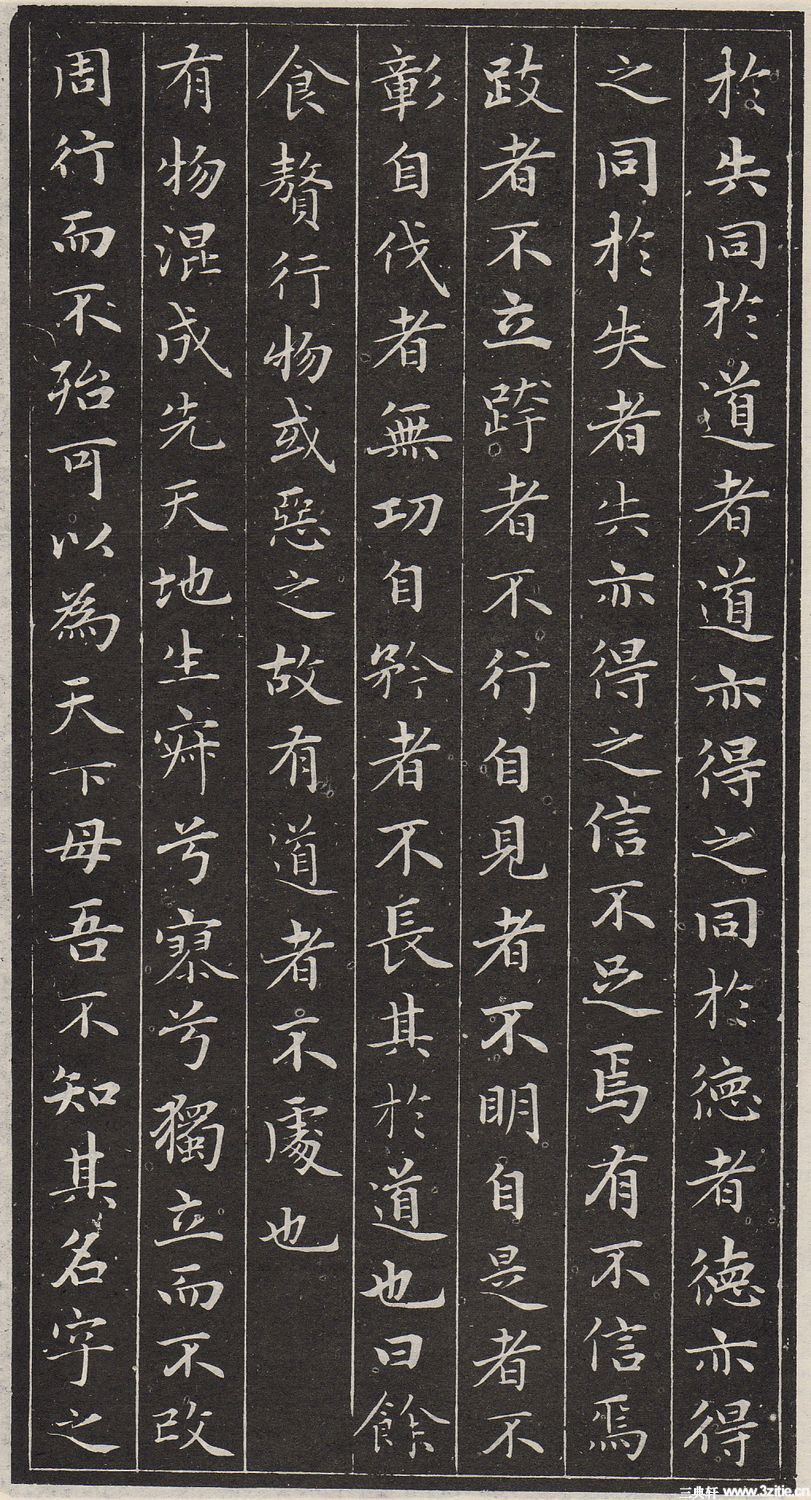 於失同於道者道亦得之同於德者德亦得
之同於失者失亦得之信不足焉有不信焉
跂者不立跨者不行自見者不明自是者不
彰自伐者無功自矜者不長其於道也曰餘
食贅行物或惡之故有道者不處也
有物混成先天地生寂兮寥兮獨立而不改
周行而不殆可以為天下母吾不知其名字之
三典轩 www.3zitie.cn